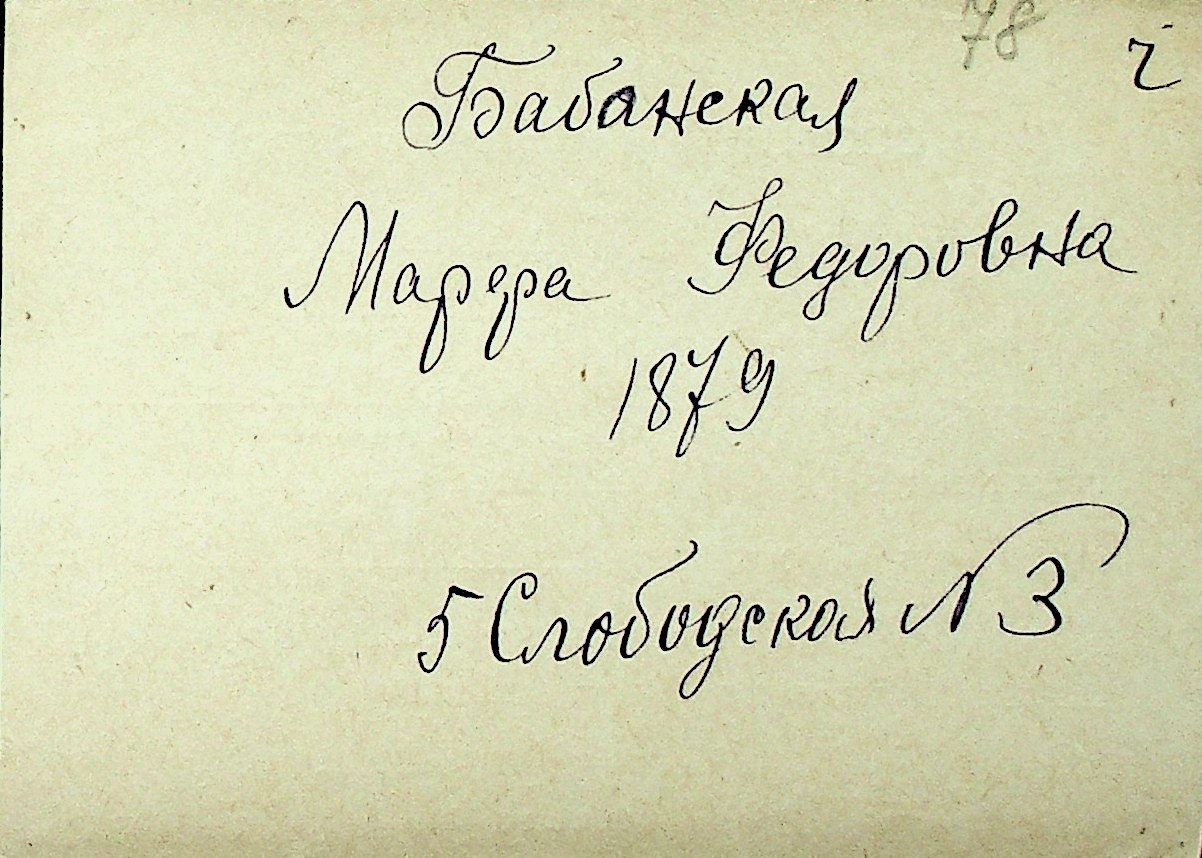 78
Бабанская
Марфа Федоровна
1879
5 Слободская N 3